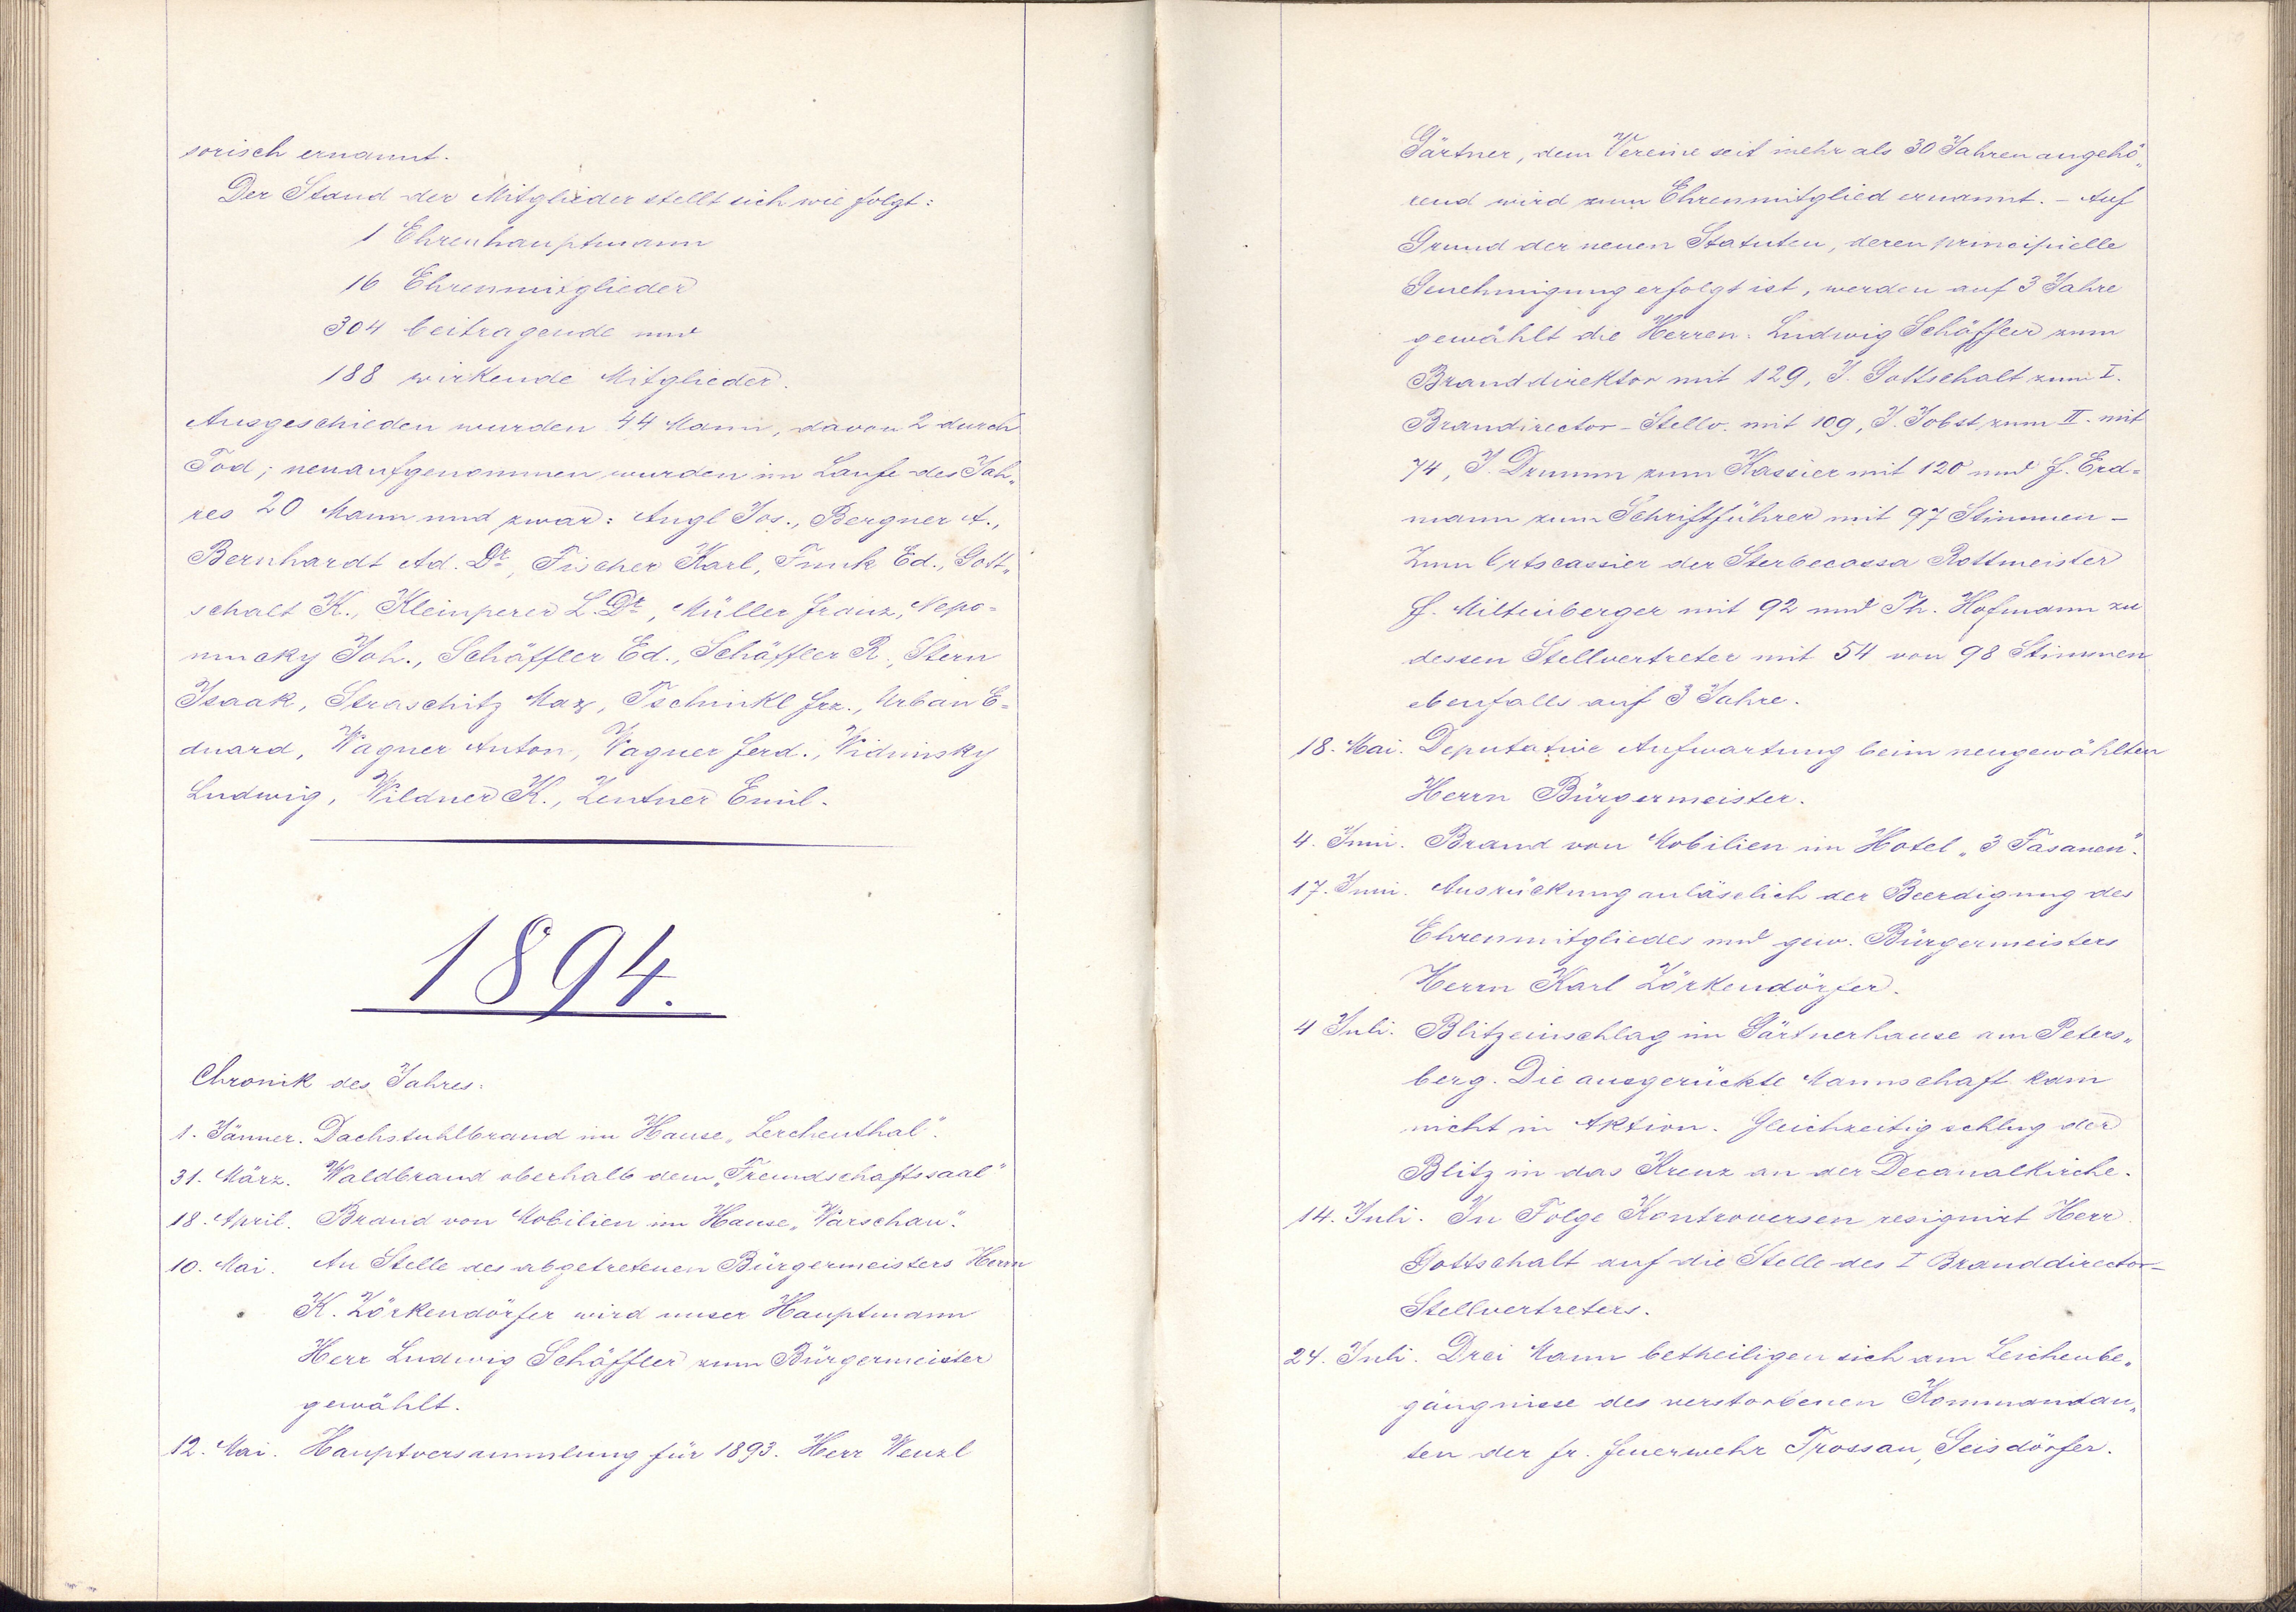 sorisch ernannt.
Der Stand der Mitglieder stellt sich wie folgt:
1 Ehrenhauptmann
16 Ehrenmitglieder
304 beitragende und
188 wirkende Mitglieder.
Ausgeschieden wurden 44 Mann, davon 2 durch
Tod; neuaufgenommen wurden im Laufe des Jah„
res 20 Mann und zwar: Angl Jos., Bergner A.,
Bernhardt Ad. Dr., Fischer Karl, Funk Ed., Gott„
schalt K., Kleinperer L. Dr., Müller Franz, Nepo=
mucky Joh., Schäffler Ed., Schäffler R., Stern
Isaak, Straschitz Max, Tschinkl Frz., Urban E=
duard, Wagner Anton, Wagner Ferd., Widminsky
Ludwig, Wildner K., Zentner Emil.
1894.
Chronik des Jahres:
1. Jänner. Dachstuhlbrand im Hause „Lerchenthal“.
31. März. Waldbrand oberhalb dem „Freundschaftssaal“
18. April. Brand von Mobilien im Hause „Warschau“.
10. Mai. An Stelle des abgetretenen Bürgermeisters Herrn
K. Zörkendörfer wird unser Hauptmann
Herr Ludwig Schäffler zum Bürgermeister
gewählt.
12. Mai. Hauptversammlung für 1893. Herr Wenzl
Gärtner, dem Vereine seit mehr als 30 Jahren angehö„
rend wird zum Ehrenmitglied ernannt. - Auf
Grund der neuen Statuten, deren principielle
Genehmigung erfolgt ist, werden auf 3 Jahre
gewählt die Herren: Ludwig Schäffler zum
Branddirektor mit 129, J. Gottschalt zum I.
Brandirector-Stellv. mit 109, J. Jobst zum II. mit
74, J. Drumm zum Kassier mit 120 und F. Erd=
mann zum Schriftführer mit 97 Stimmen -
Zum Ortscassier der Sterbecassa Rottmeister
F. Miltenberger mit 92 und Th. Hofmann zu
dessen Stellvertreter mit 54 von 98 Stimmen
ebenfalls auf 3 Jahre.
18. Mai. Deputative Aufwartung beim neugewählten
Herrn Bürgermeister.
4. Juni. Brand von Mobilien im Hotel „3 Fasanen“.
17. Juni. Ausrückung anläslich der Beerdigung des
Ehrenmitgliedes und gew. Bürgermeisters
Herrn Karl Zörkendörfer.
4 Juli. Blitzeinschlag im Gärtnerhause am Peters„
berg. Die ausgerückte Mannschaft kam
nicht in Aktion. Gleichzeitig schlug der
Blitz in das Kreuz an der Decanalkirche.
14. Juli. In Folge Kontroversen resignirt Herr
Gottschalt auf die Stelle des I Branddirector-
Stellvertreters.
24. Juli. Drei Mann betheiligen sich am Leichenbe„
gängnisse des verstorbenen Kommandan„
ten der fr. Feuerwehr Trossau, Geisdörfer.